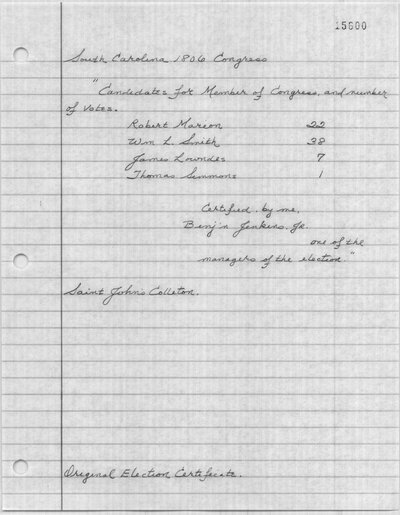 15000
South Carolina 1806 Congress
"Candidates for Member of Congress, and number
of votes.
Robert Marion 22
Wm L. Smith 38
James Lowndes 7
Thomas Simmons 1
Certified, by me,
Benj'n Jenkins, Jr.
one of the
managers of the election"
Saint John's Colleton.
Original Election Certificate.